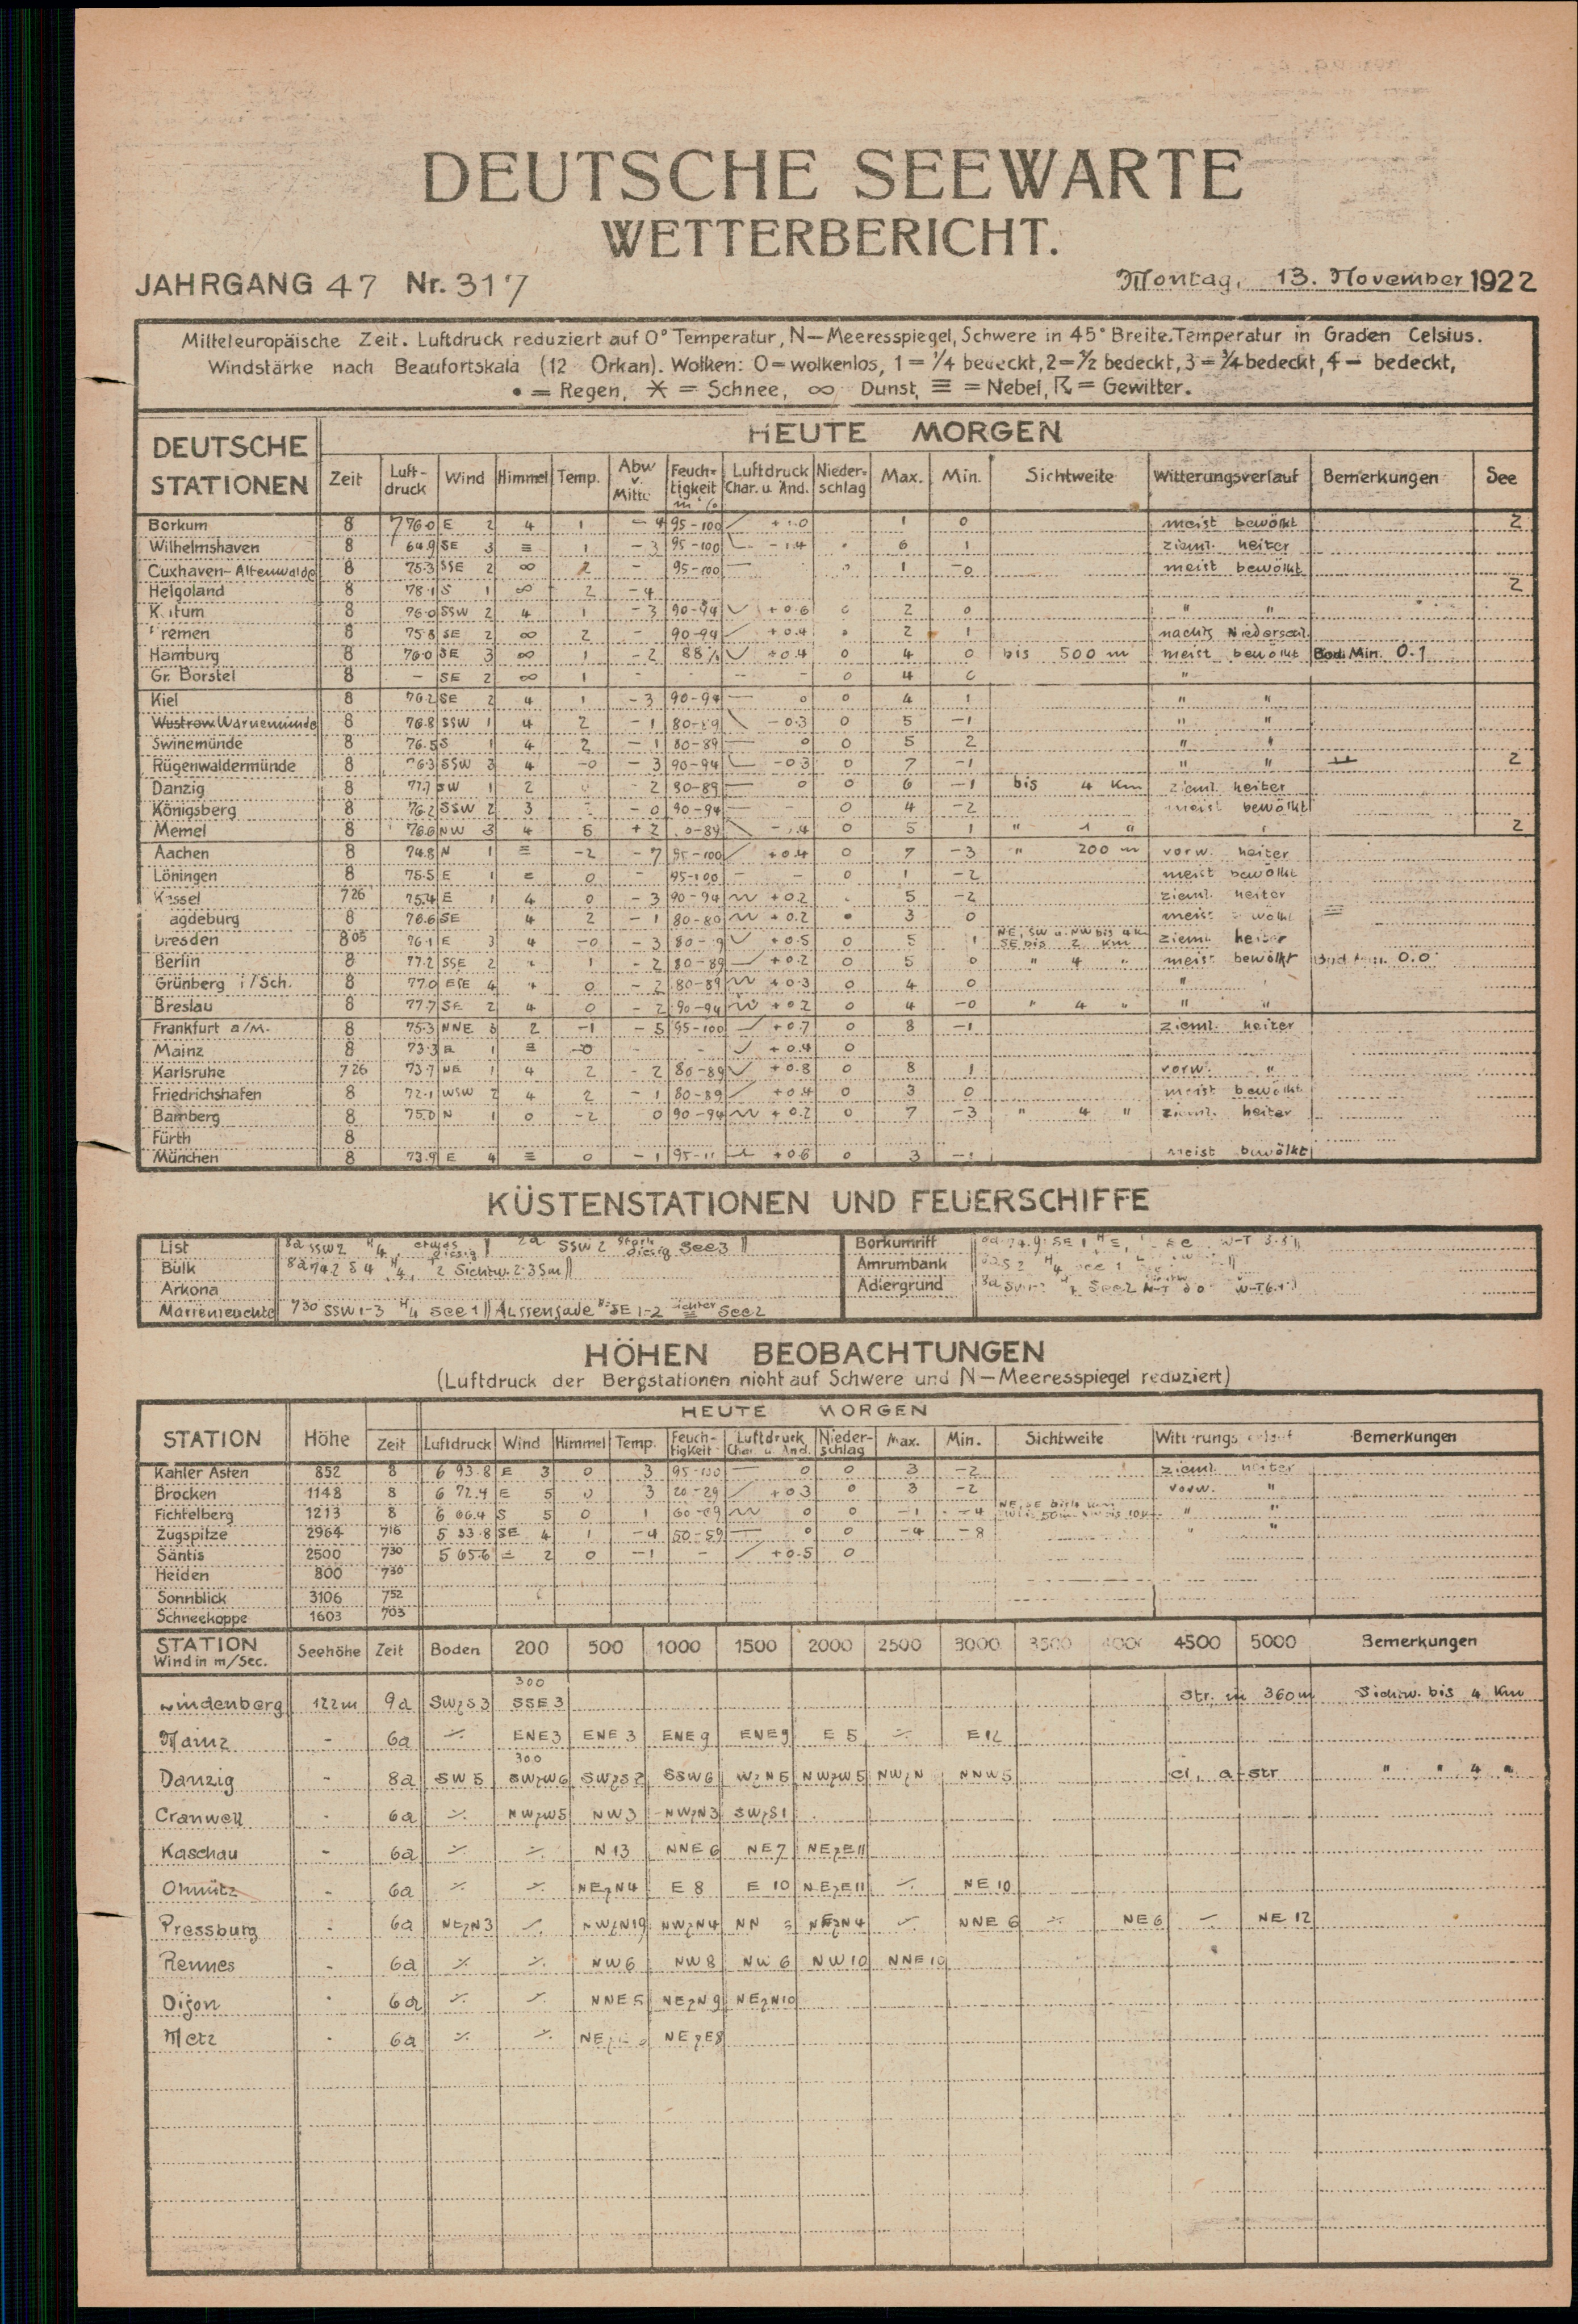 DEUTSCHE SEEWARTE
WETTERBERICHT.
JAHRGANG 47 Nr. 317 Montag, 13. November 1922
Mitteleuropäische Zeit. Luftdruck reduziert auf 0° Temperatur, N—Meeresspiegel, Schwere in 45° Breite. Temperatur in Graden Celsius.
Windstärke nach Beaufortskala (12 Orkan). Wolken: 0=wolkenlos, 1=1/4 bedeckt, 2=1/2 bedeckt, 3=3/4 bedeckt, 4= bedeckt,
• = Regen, ✳ = Schnee, ∞ Dunst, ≡ = Nebel, ☈ = Gewitter.
DEUTSCHE STATIONEN HEUTE MORGEN
Zeit Luft-druck Wind Himmel Temp. Abw v. Mittel Feuch-tigkeit in % Luftdruck Char. u. Änd. Nieder-schlag Max. Min. Sichtweite Witterungsverlauf Bemerkungen See
Borkum 8 776.0 E 2 4 1 −4 95-100 1 0 meist bewölkt 2
Wilhelmshaven 8 64.9 SE 3 ≡ 1 −3 95-100 −1.4 • 6 1 zieml. heiter
Cuxhaven-Altenwalde 8 75.3 SSE 2 ∞ 2 − 95-100 — 1 −0 meist bewölkt
Helgoland 8 78.1 S 1 ∞ 2 −4 2
8 76.0 SSW 2 4 1 −3 90-94 +0.6 2 0 " "
8 75.8 SE 2 ∞ 2 − 90-94 +0.4 • 2 1 nachts
Hamburg 8 76.0 SE 3 ∞ 1 −2 88% +0.4 0 4 0 bis 500 m meist bewölkt Bod. Min. 0.1
Gr. Borstel 8 − SE 2 ∞ 1 - - - - 0 4 "
Kiel 8 76.2 SE 2 4 1 −3 90-94 — 0 0 4 1 " "
Wustrow Warnemünde 8 76.8 SSW 1 4 2 −1 80-89 −0.3 0 5 −1 " "
Swinemünde 8 76.5 S 1 4 2 −1 80-89 — 0 0 5 2 " "
Rügenwaldermünde 8 76.3 SSW 3 4 −0 −3 90-94 −0.3 0 7 −1 " " 2
Danzig 8 77.7 SW 1 2 −2 80-89 — 0 0 6 −1 bis 4 Km zieml. heiter
Königsberg 8 76.2 SSW 2 3 −0 90-94 — - 0 4 −2 meist bewölkt
Memel 8 76.6 NW 3 4 5 +2 0 5 1 " 1 " 2
Aachen 8 74.8 N 1 ≡ −2 −7 95-100 +0.4 0 7 −3 " 200 m vorw. heiter
Löningen 8 75.5 E 1 = 0 - 95-100 - - 0 1 −2 meist bewölkt
Kassel 7 26 75.4 E 1 4 0 −3 90-94 +0.2 5 −2 zieml. heiter
agdeburg 8 76.6 SE 4 2 −1 +0.2 • 3 0 meist ≡
Dresden 8 05 76.1 E 3 4 −0 −3 +0.5 0 5 1 NE, SW u. NW bis 4 Km SE bis 2 Km zieml. heiter
Berlin 8 77.2 SSE 2 1 −2 80-89 +0.2 0 5 0 " 4 " meist bewölkt 0.0
Grünberg i/Sch. 8 77.0 ESE 4 0 −2 80-89 +0.3 0 4 0 "
Breslau 8 77.7 SE 2 4 0 −2 90-94 +0.2 0 4 −0 " 4 " " "
Frankfurt a/M. 8 75.3 NNE 3 2 −1 −5 95-100 +0.7 0 8 −1 zieml. heiter
Mainz 8 73.3 1 ≡ −0 - - +0.4 0
Karlsruhe 7 26 73.7 NE 1 4 2 −2 80-89 +0.8 0 8 1 vorw. "
Friedrichshafen 8 72.1 WSW 2 4 2 −1 80-89 +0.4 0 3 0 meist bewölkt
Bamberg 8 75.0 N 1 0 −2 0 90-94 +0.2 0 7 −3 " 4 " zieml. heiter
Fürth 8
München 8 73.9 E 4 ≡ 0 −1 +0.6 0 3 −1 meist bewölkt
KÜSTENSTATIONEN UND FEUERSCHIFFE
List 8a SSW2 4, etwas diesig 2a SSW 2 stark diesig See3
Bülk 8a 74.2 S 4 Sichtw. 2-3 Sm
Arkona
Marienleuchte 7 30 SSW 1-3 4 See 1 Aussenjade SE 1-2 See2
Borkumriff
Amrumbank
Adlergrund See2
HÖHEN BEOBACHTUNGEN
(Luftdruck der Bergstationen nicht auf Schwere und N—Meeresspiegel reduziert)
STATION Höhe HEUTE MORGEN
Zeit Luftdruck Wind Himmel Temp. Feuch-tigkeit Luftdruck Char. u. Änd. Nieder-schlag Max. Min. Sichtweite Witterungsverlauf Bemerkungen
Kahler Asten 852 8 6 93.8 E 3 0 3 95-100 — 0 0 3 −2 zieml. heiter
Brocken 1148 8 6 72.4 E 5 0 3 20-29 +0.3 0 3 −2 vorw. "
Fichtelberg 1213 8 6 66.4 S 5 0 1 60-69 0 0 −1 −4 " "
Zugspitze 2964 7 16 5 33.8 SE 4 1 −4 50-59 — 0 0 −4 −8 " "
Säntis 2500 7 30 5 65.6 2 0 −1 - +0.5 0
Heiden 800 7 30
Sonnblick 3106 7 52
Schneekoppe 1603 7 03
STATION Wind in m/Sec. Seehöhe Zeit Boden 200 500 1000 1500 2000 2500 3000 3500 4000 4500 5000 Bemerkungen
300
Lindenberg 122m 9a SWzS 3 SSE 3 Str. in 360 m Sichtw. bis 4 Km
Mainz - 6a ∕. ENE3 ENE 3 ENE 9 ENE9 E 5 ∕. E12
300
Danzig - 8a SW 5 SWzW6 SWzS 2 SSW 6 WzN 5 NWzW 5 NWzN NNW5 ci, a-str " " 4 "
Cranwell - 6a ∕. NWzW5 NW3 NWzN3 SWzS1
Kaschau - 6a ∕. ∕. N 13 NNE 6 NE7 NEzE11
Olmütz - 6a ∕. ∕. NEzN4 E 8 E 10 NEzE11 ∕. NE 10
Pressburg - 6a NEzN3 ∕. NWzN19 NWzN4 NEzN4 ∕. NNE 6 ∕. NE6 ∕. NE 12
Rennes - 6a ∕. ∕. NW6 NW8 NW 6 NW10 NNE 10
Dijon - 6a ∕. ∕. NNE5 NEzN 9 NEzN10
Metz - 6a ∕. ∕. NEzE8